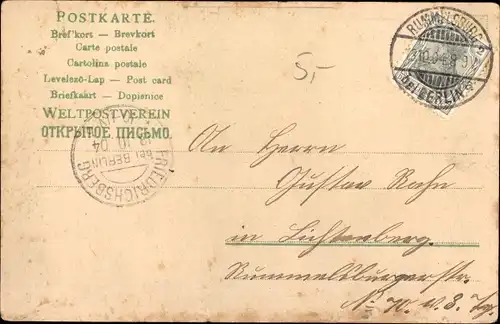 POSTKARTE.
Bref'kort — Brevkort
Carte postale
Cartolina postale
Levelező-Lap — Post card
Briefkaart — Dopisnice
WELTPOSTVEREIN
ОТКРЫТОЕ ПИСЬМО.
5,-
RUMMELSBURG
BERLIN
FRIEDRICHSBERG
bei BERLIN
10 04
An Herrn
Gustav Rahn
in Lichtenberg
Rummelsburgerstr.